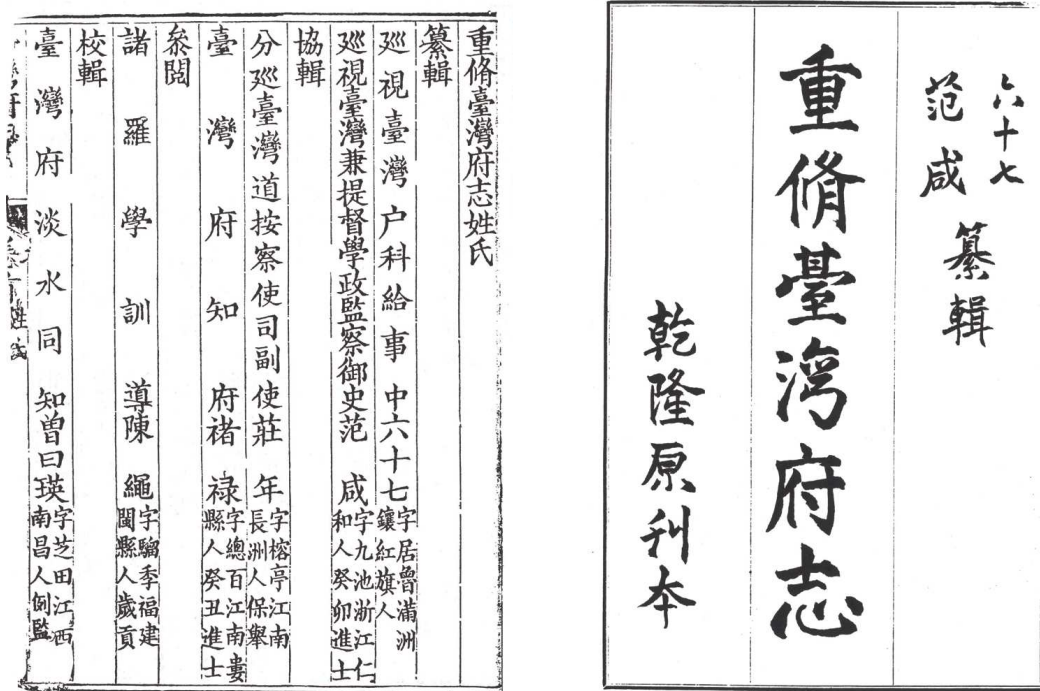 六十七
范咸
纂輯
重脩臺灣府志
乾隆原刊本
重脩臺灣府志姓氏
纂輯
巡視臺灣户科給事中六十七字居魯滿洲鑲紅旗人
巡視臺灣兼提督學政監察御史范咸字九池浙江仁和人癸卯進士
協輯
分巡臺灣道按察使司副使莊年字榕亭江南長洲人保舉
臺灣府知府褚禄字總百江南婁縣人癸丑進士
叅閲
諸羅學訓導陳繩字騮季福建閩縣人歲貢
校輯
臺灣府淡水同知曽曰瑛字芝田江西南昌人例監